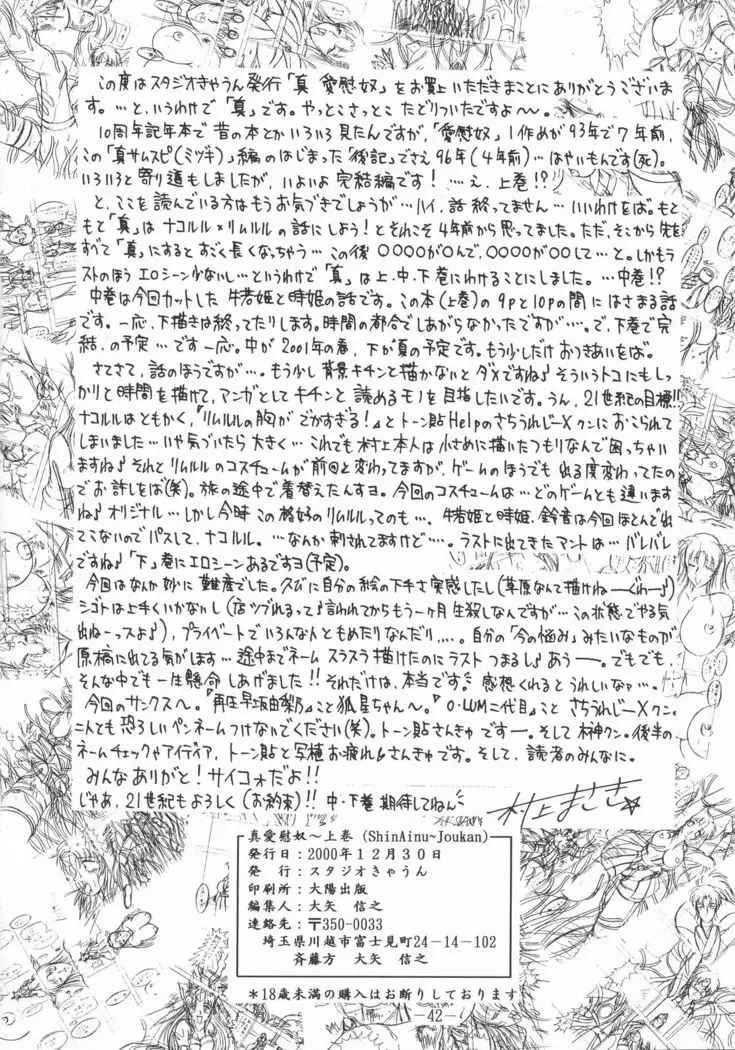 この度はスタジオきゃうん発行「真 愛慰奴」をお買上いただきまことにありがとうございま
す。…と、いうわけで「真」です。やっとこさっとこ たどりついたですよ〜〜。
10周年記年本で昔の本とかいろいろ見たんですが、「愛慰奴」1作めが93年で7年前、
この「真サムスピ(ミツキ)」編のはじまった「後記」でさえ96年(4年前)…はやいもんです(死)。
いろいろと寄り道もしましたが、いよいよ完結編です! …え、上巻!?
と、ここを読んでいる方はもうお気づきでしょうが…ハイ、話終ってません…いいわけをば。もと
もと「真」はナコルル×リムルルの話にしよう!とそれこそ4年前から思ってました。ただ、そこから先を
すべて「真」にするとすごく長くなっちゃう…この後〇〇〇〇が〇んで、〇〇〇〇が〇〇して…と。しかもラ
ストのほうエロシーン少ないし…というわけで「真」は上、中、下巻にわけることにしました。…中巻!?
中巻は今回カットした牛若姫と時姫の話です。この本(上巻)の9pと10pの間にはさまる話
です。一応、下描きは終ってたりします。時間の都合であがらなかったですが…。で、下巻で完
結、の予定…です一応。中が2001年の春、下が夏の予定です。もう少しだけおつきあいをば。
さてさて、話のほうですが…。もう少し背景キチンと描かないとダメですね♪そういうトコにもしっ
かりと時間を描けて、マンガとしてキチンと読めるモノを目指したいです。うん、21世紀の目標!!
ナコルルはともかく、『リムルルの胸がでかすぎる!』とトーン貼Helpのさちうれじ〜Xクンにおこられて
しまいました…いや気づいたら大きく…これでも村上本人は小さめに描いたつもりなんで困っちゃい
ますね♪それとリムルルのコスチュームが前回と変わってますが、ゲームのほうでも出る度変わってたの
でお許しをば(笑)。旅の途中で着替えたんすヨ。今回のコスチュームは…どのゲームとも違います
ね♪オリジナル…しかし今時この格好のリムルルってのも…。牛若姫と時姫、鈴音は今回ほとんど出
てこないのでパスして、ナコルル。…なんか刺されてますけど…。ラストに出てきたアントは…バレバレ
ですね♪「下」巻にエロシーンあるですヨ(予定)。
今回はなんか妙に難産でした。久びに自分の絵の下手さ実感したし(草原なんて描けねーぐわー♪)
シゴトは上手くいかないし(店ツブれるって♪言われてからもう一ヶ月生殺しなんですが…この状態でやる気
出ねーっスよ♪)、プライベートでいろんな人ともめたりなんだり…。自分の「今の悩み」みたいなものが
原稿に出てる気がします…途中までネームスラスラ描けたのにラストつまるし♪あうー。でもでも、
そんな中でも一生懸命しあげました!!それだけは、本当です。感想くれるとうれしいなァ…。
今回のサンクスへ。『再圧早坂由梨乃』こと狐星ちゃん〜。『O・LUM二代目』こと さちうれじ〜Xクン。
二人とも恐ろしいペンネームつけないでください(笑)。トーン貼さんきゅですー。そして林神クン。後半の
ネームチェックやアイディア、トーン貼と写植お疲れ♪さんきゅです。そして、読者のみんなに。
みんなありがと!サイコォだよ!!
じゃあ、21世紀もよろしく(お約束)!! 中・下巻期待してねん
村上まさき☆
真愛慰奴〜上巻 (ShinAinu~Joukan)
発行日:2000年12月30日
発 行:スタジオきゃうん
印刷所:大陽出版
編集人:大矢 信之
連絡先:〒350-0033
埼玉県川越市富士見町24－14－102
斉藤方 大矢 信之
＊18歳未満の購入はお断りしております
-42-